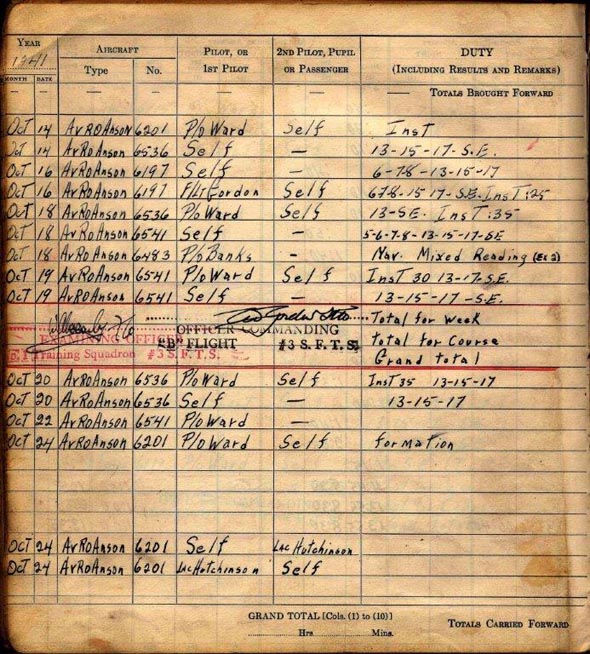 YEAR AIRCRAFT PILOT, OR 2ND PILOT, PUPIL DUTY
1941 Type No. 1ST PILOT OR PASSENGER (INCLUDING RESULTS AND REMARKS)
MONTH DATE
— — — — — — — TOTALS BROUGHT FORWARD
Oct 14 AvRoAnson 6201 P/o Ward Self Inst
Oct 14 AvRoAnson 6536 Self — 13-15-17-S.E.
Oct 16 AvRoAnson 6197 Self — 6-7-8-13-15-17
Oct 16 AvRoAnson 6197 F/Lt Gordon Self 678-15 17-S.E. Inst :25
Oct 18 AvRoAnson 6536 P/o Ward Self 13-SE. Inst :35
Oct 18 AvRoAnson 6541 Self — 5-6-7-8-13-15-17-SE
Oct 18 AvRoAnson 6483 P/o Banks - Nav. Mixed Reading (Ex 2)
Oct 19 AvRoAnson 6541 P/o Ward Self Inst 30 13-17-S.E.
Oct 19 AvRoAnson 6541 Self — 13-15-17-S.E.
Total for Week
EXAMINING OFFICER OFFICER COMMANDING total for Course
Training Squadron #3 S.F.T.S. "B" FLIGHT #3 S.F.T.S. Grand total
Oct 20 AvRoAnson 6536 P/o Ward Self Inst 35 13-15-17
Oct 20 AvRoAnson 6536 Self — 13-15-17
Oct 22 AvRoAnson 6541 P/o Ward —
Oct 24 AvRoAnson 6201 P/o Ward Self formation
Oct 24 AvRoAnson 6201 Self LAC Hutchinson
Oct 24 AvRoAnson 6201 LAC Hutchinson Self
GRAND TOTAL [Cols. (1) to (10)]
Hrs. Mins. TOTALS CARRIED FORWARD